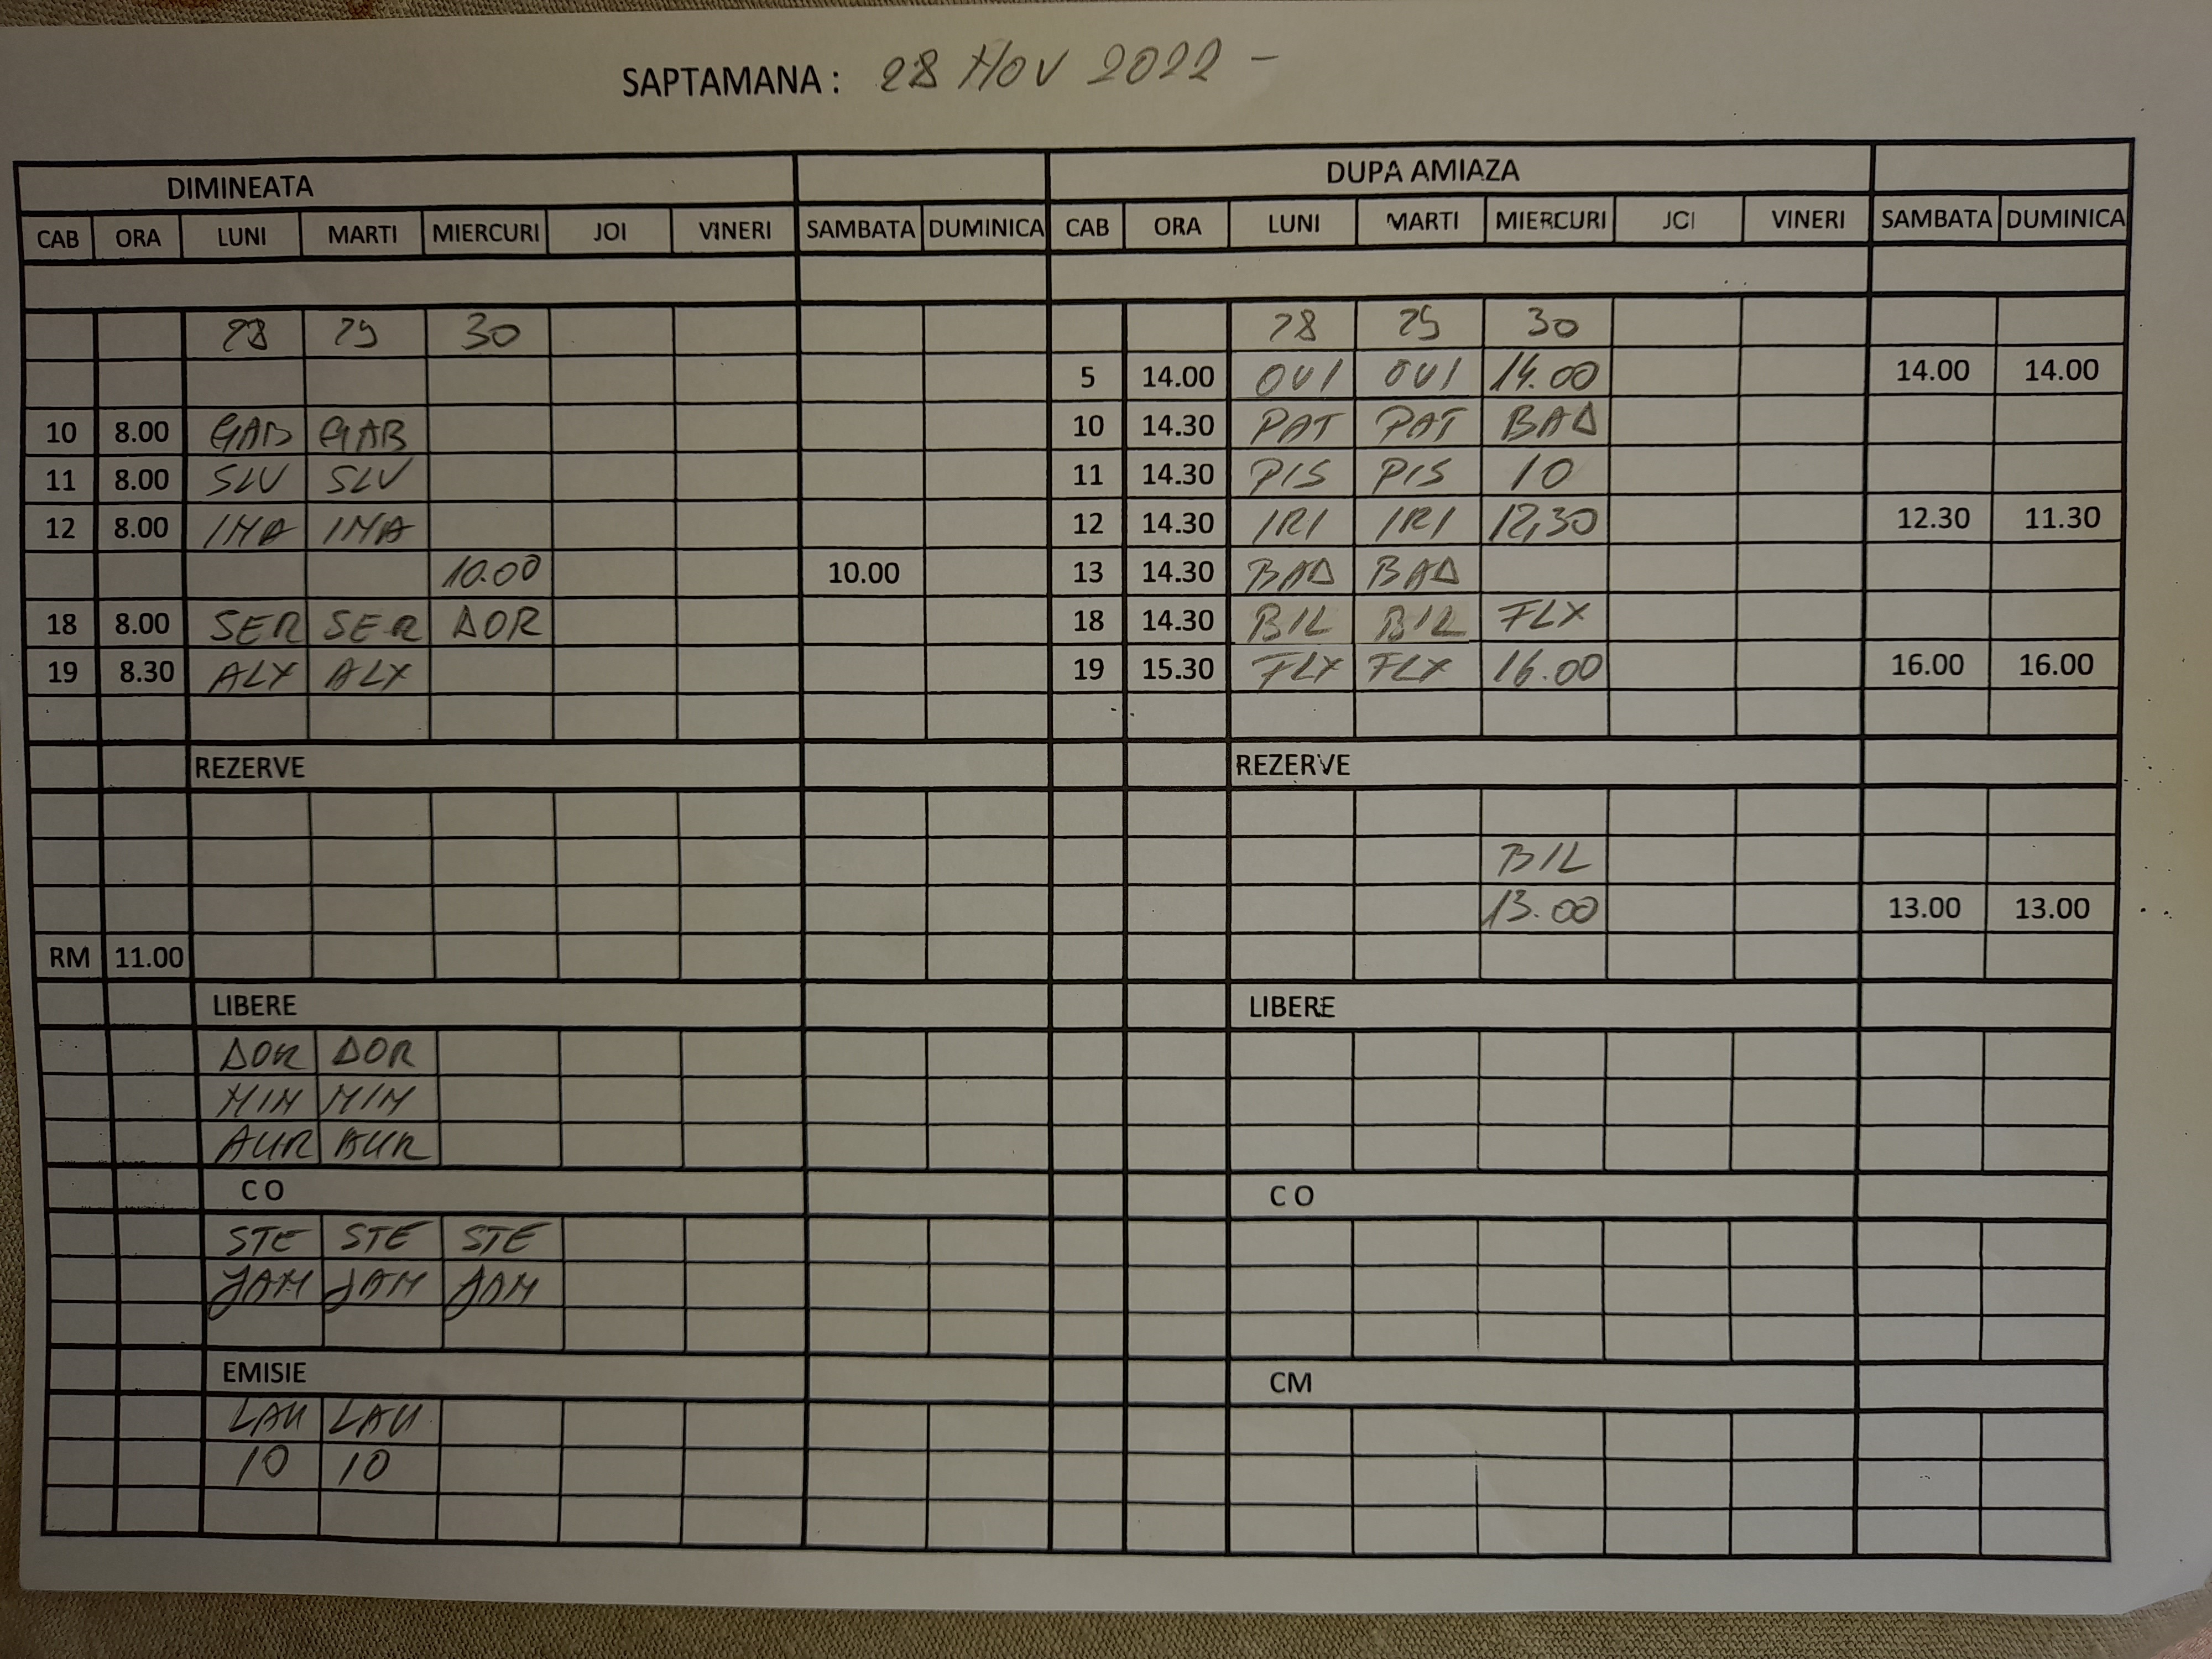 SAPTAMANA : 28 NOV 2022 -
DIMINEATA DUPA AMIAZA
CAB ORA LUNI MARTI MIERCURI JOI VINERI SAMBATA DUMINICA CAB ORA LUNI MARTI MIERCURI JOI VINERI SAMBATA DUMINICA
28 29 30 28 29 30
5 14.00 OVI OVI 14.00 14.00 14.00
10 8.00 GAB GAB 10 14.30 PAT PAT BAD
11 8.00 SLV SLV 11 14.30 PIS PIS 10
12 8.00 INA INA 12 14.30 IRI IRI 12,30 12.30 11.30
10.00 10.00 13 14.30 BAD BAD
18 8.00 SER SER DOR 18 14.30 BIL BIL FLX
19 8.30 ALX ALX 19 15.30 FLX FLX 16.00 16.00 16.00
REZERVE REZERVE
BIL
13.00 13.00 13.00
RM 11.00
LIBERE LIBERE
DOR DOR
MIH MIH
AUR AUR
C O C O
STE STE STE
JAN JAN JAN
EMISIE CM
LAU LAU
10 10